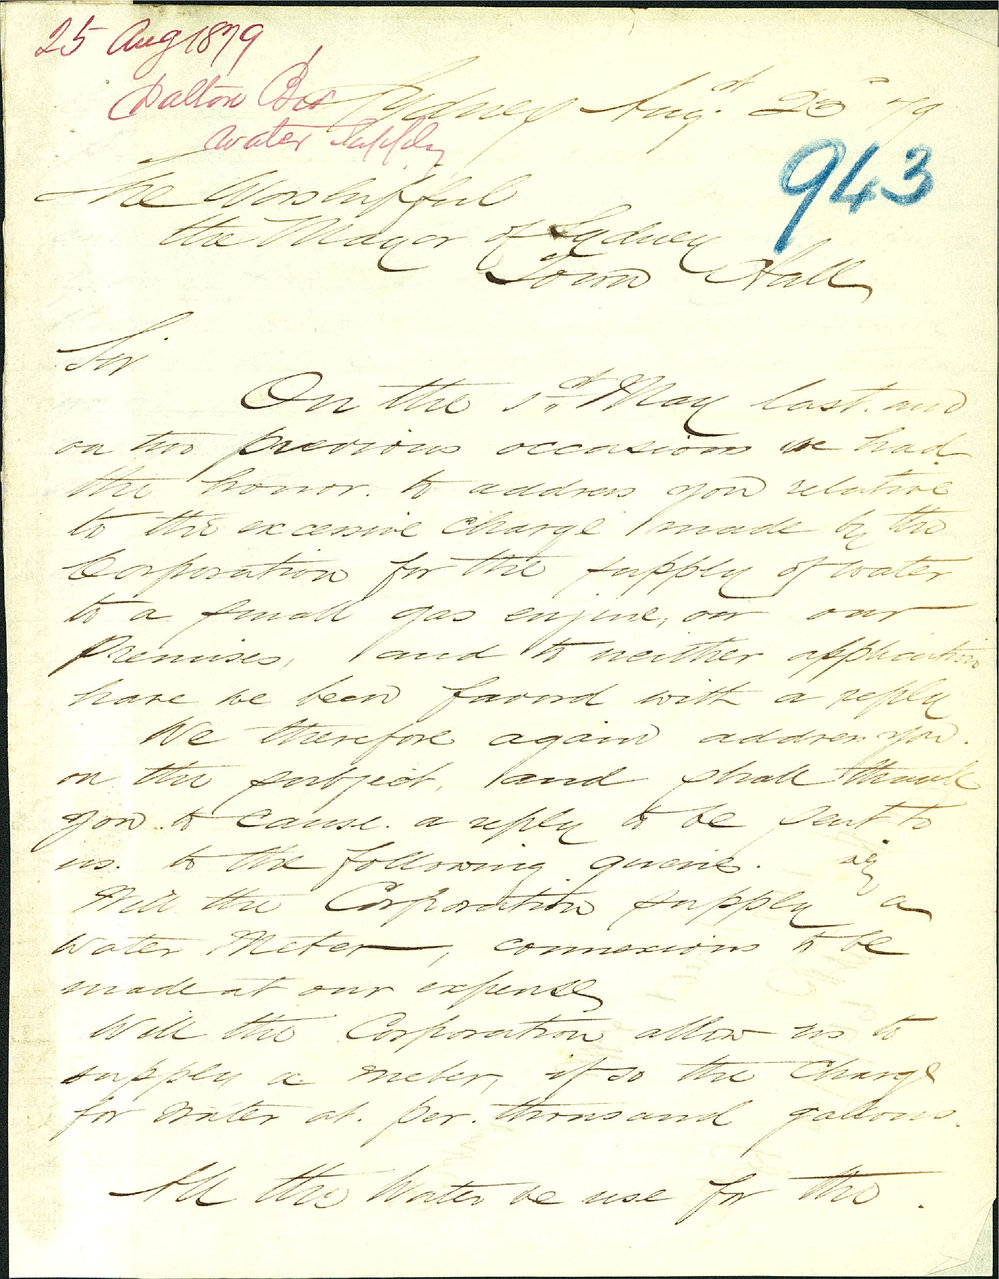 25 Aug 1879
Dalton Bros
Water Supply
Sydney Augt. 25th 79
943
The Worshipful
the Mayor of Sydney
Town Hall
Sir
On the 1st May last. and
on two previous occasions we had
the honor. to address you relative
to the excessive charge made by the
Corporation for the supply of water
to a small gas engine, on our
premises, and to neither application
have we been favord with a reply
We therefore again address you.
on the subject, and shall thank
you to cause. a reply to be sent to
us. to the following queries. viz
Will the Corporation supply a
Water Meter, connexions to be
made at our expense
Will the Corporation allow us to
supply a meter, if so the Charge
for water at. per. thousand gallons.
All the Water we use for the.